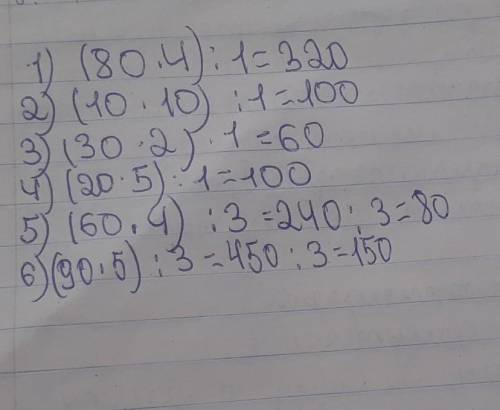 1) (80·4):1=320
2) (10·10):1=100
3) (30·2)·1=60
4) (20·5):1=100
5) (60·4):3=240:3=80
6) (90·5):3=450:3=150